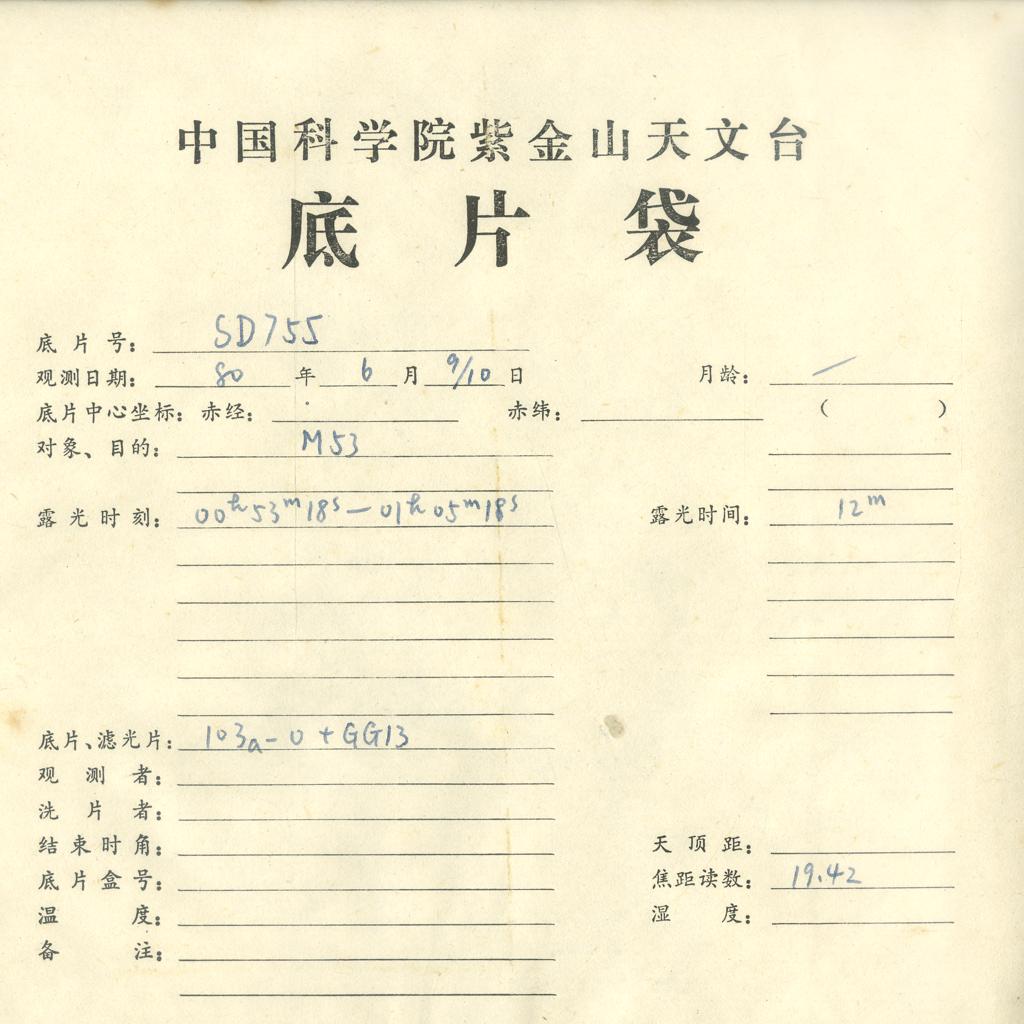 中国科学院紫金山天文台
底片袋
底片号: SD755
观测日期: 80 年 6 月 9/10 日 月龄: —
底片中心坐标: 赤经: 赤纬: ( )
对象、目的: M53
露光时刻: 00h53m18s—01h05m18s 露光时间: 12m
底片、滤光片: 103a-O+GG13
观测者:
洗片者:
结束时角: 天顶距:
底片盒号: 焦距读数: 19.42
温度: 湿度:
备注: